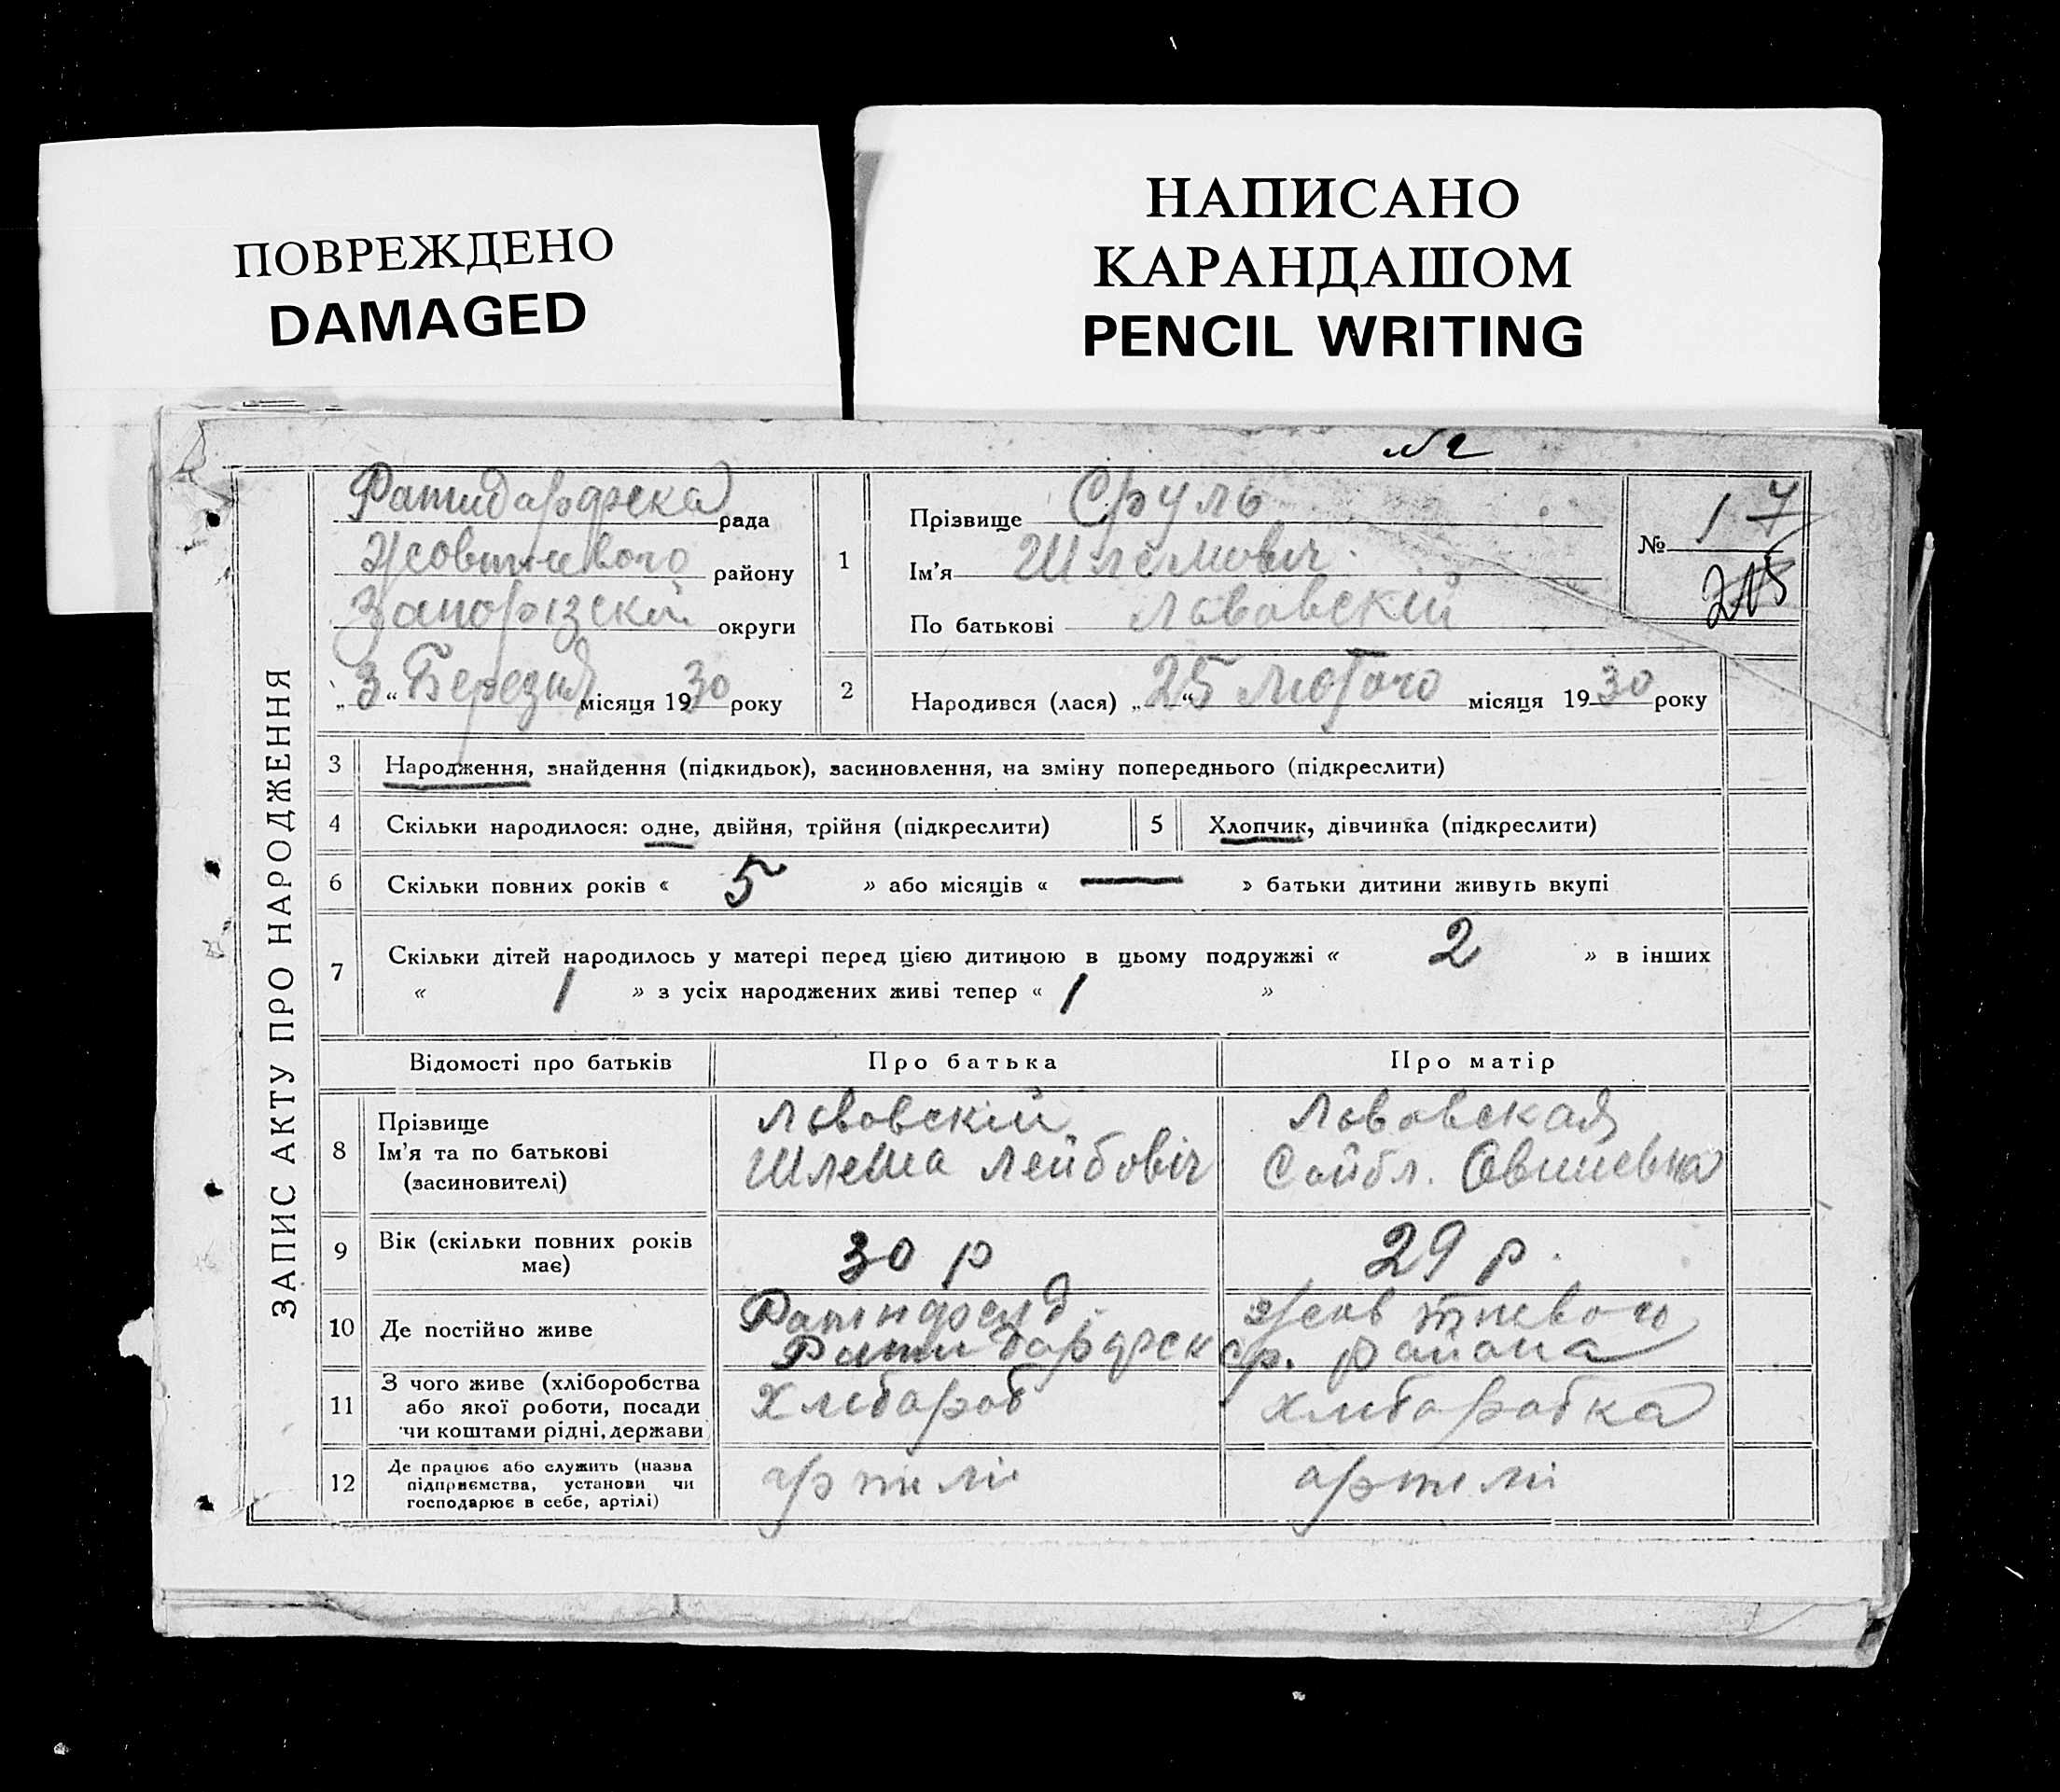 ПОВРЕЖДЕНО
DAMAGED
НАПИСАНО
КАРАНДАШОМ
PENCIL WRITING
№ 2
ЗАПИС АКТУ ПРО НАРОДЖЕННЯ
рада
Жовтневого району
Запорізскій округи
„3“ Березня місяця 1930 року
1
Прізвище Сруль
Ім'я Шлемовіч
По батькові Львовскій
№ 17
215
2
Народився (лася) „25“ Лютого місяця 1930 року
3 Народження, знайдення (підкидьок), засиновлення, на зміну попереднього (підкреслити)
4 Скільки народилося: одне, двійня, трійня (підкреслити)
5 Хлопчик, дівчинка (підкреслити)
6 Скільки повних років « 5 » або місяців « — » батьки дитини живуть вкупі
7 Скільки дітей народилось у матері перед цією дитиною в цьому подружжі « 2 » в інших
« 1 » з усіх народжених живі тепер « 1 »
Відомості про батьків
Про батька
Про матір
8
Прізвище
Ім'я та по батькові
(засиновителі)
Львовскій
Шлема Лейбовіч
Львовская
Сойбл. Овшиевна
9
Вік (скільки повних років
має)
30 р
29 р.
10 Де постійно живе
Жовтневого
района
11
З чого живе (хліборобства
або якої роботи, посади
чи коштами рідні, держави
Хлібороб
хліборобка
12
Де працює або служить (назва
підприємства, установи чи
господарює в себе, артілі)
артілі
артілі